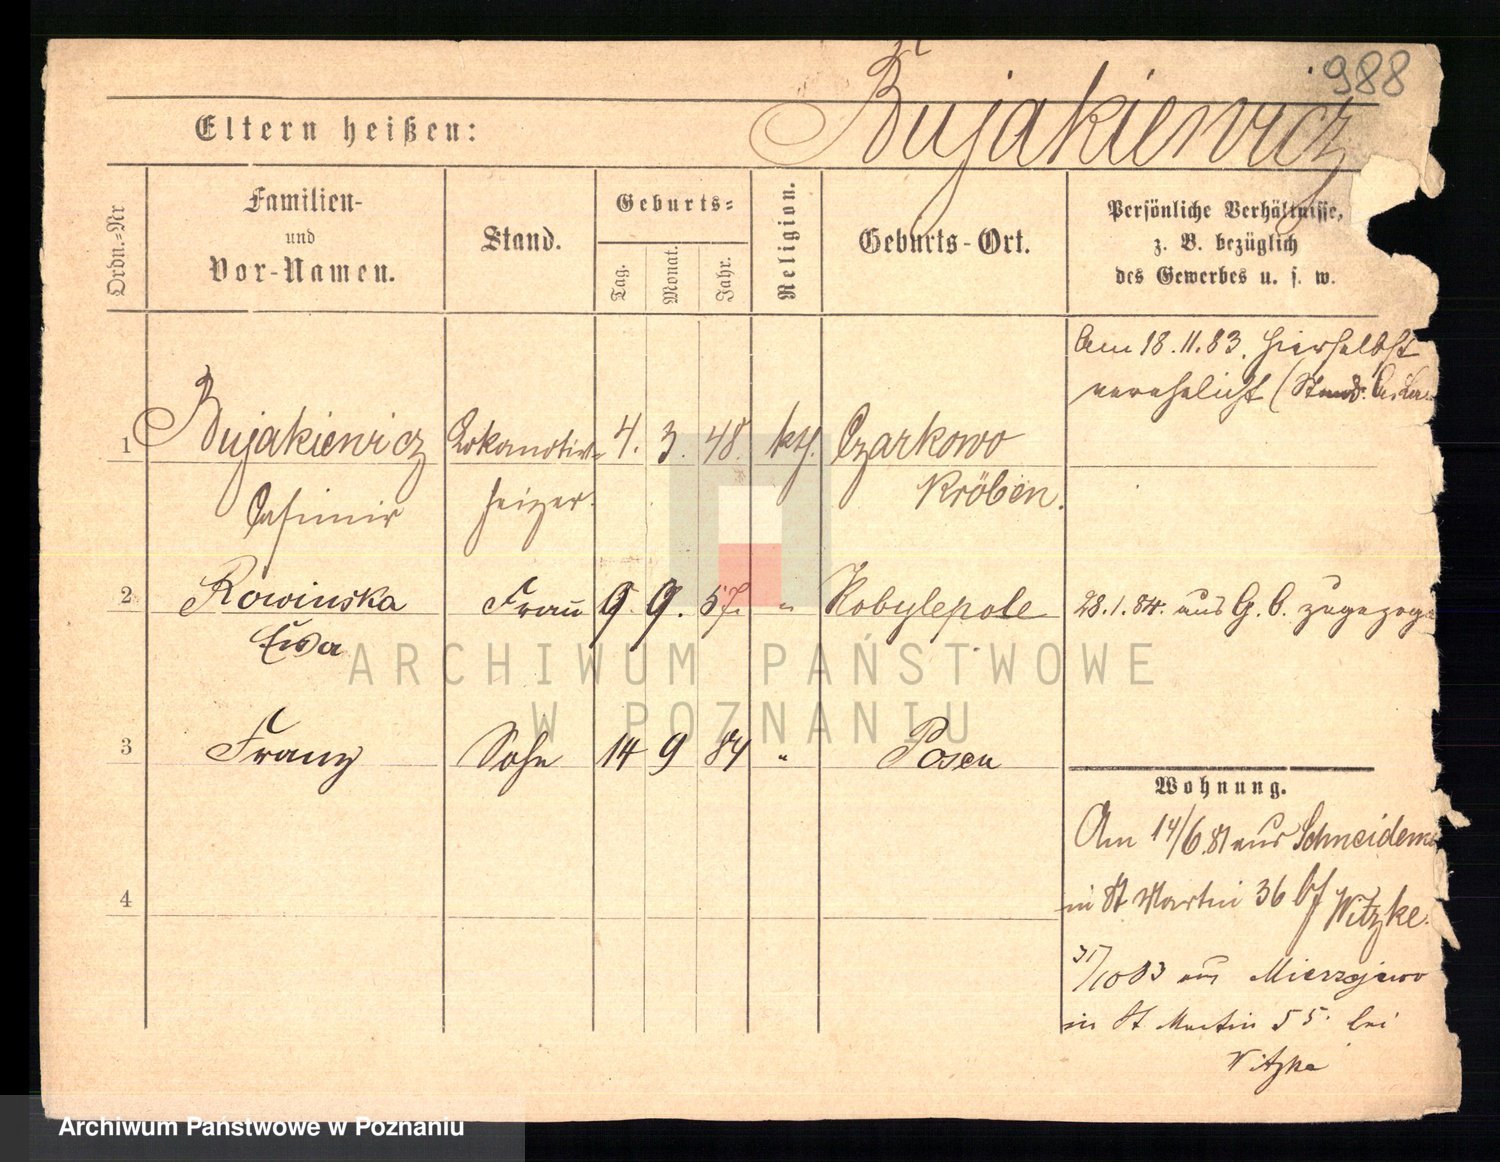 988
Bujakiewicz
Eltern heißen:
Ordn.-Nr
Familien-
und
Vor-Namen.
Stand.
Geburts-
Tag.
Monat.
Jahr.
Religion.
Geburts-Ort.
Persönliche Verhältnisse,
z. B. bezüglich
des Gewerbes u. s. w.
Am 18.11.83. hierselbst
verehelicht (Stand.
1 Bujakiewicz Lokomotiv- 4. 3. 48. kth. Czarkowo
Casimir heizer. Kröben.
2 Rowinska Frau 9. 9. 57. " Kobylepole 28.1.84. aus G. C.
Ewa
3 Franz Sohn 14 9 84 " Posen
Wohnung.
4
Am 14/6.81 aus Schneidem
in St Martin 36 bf Witzke.
31/10 83 aus
in St Martin 55. bei
Witzke
ARCHIWUM PAŃSTWOWE
W POZNANIU
Archiwum Państwowe w Poznaniu